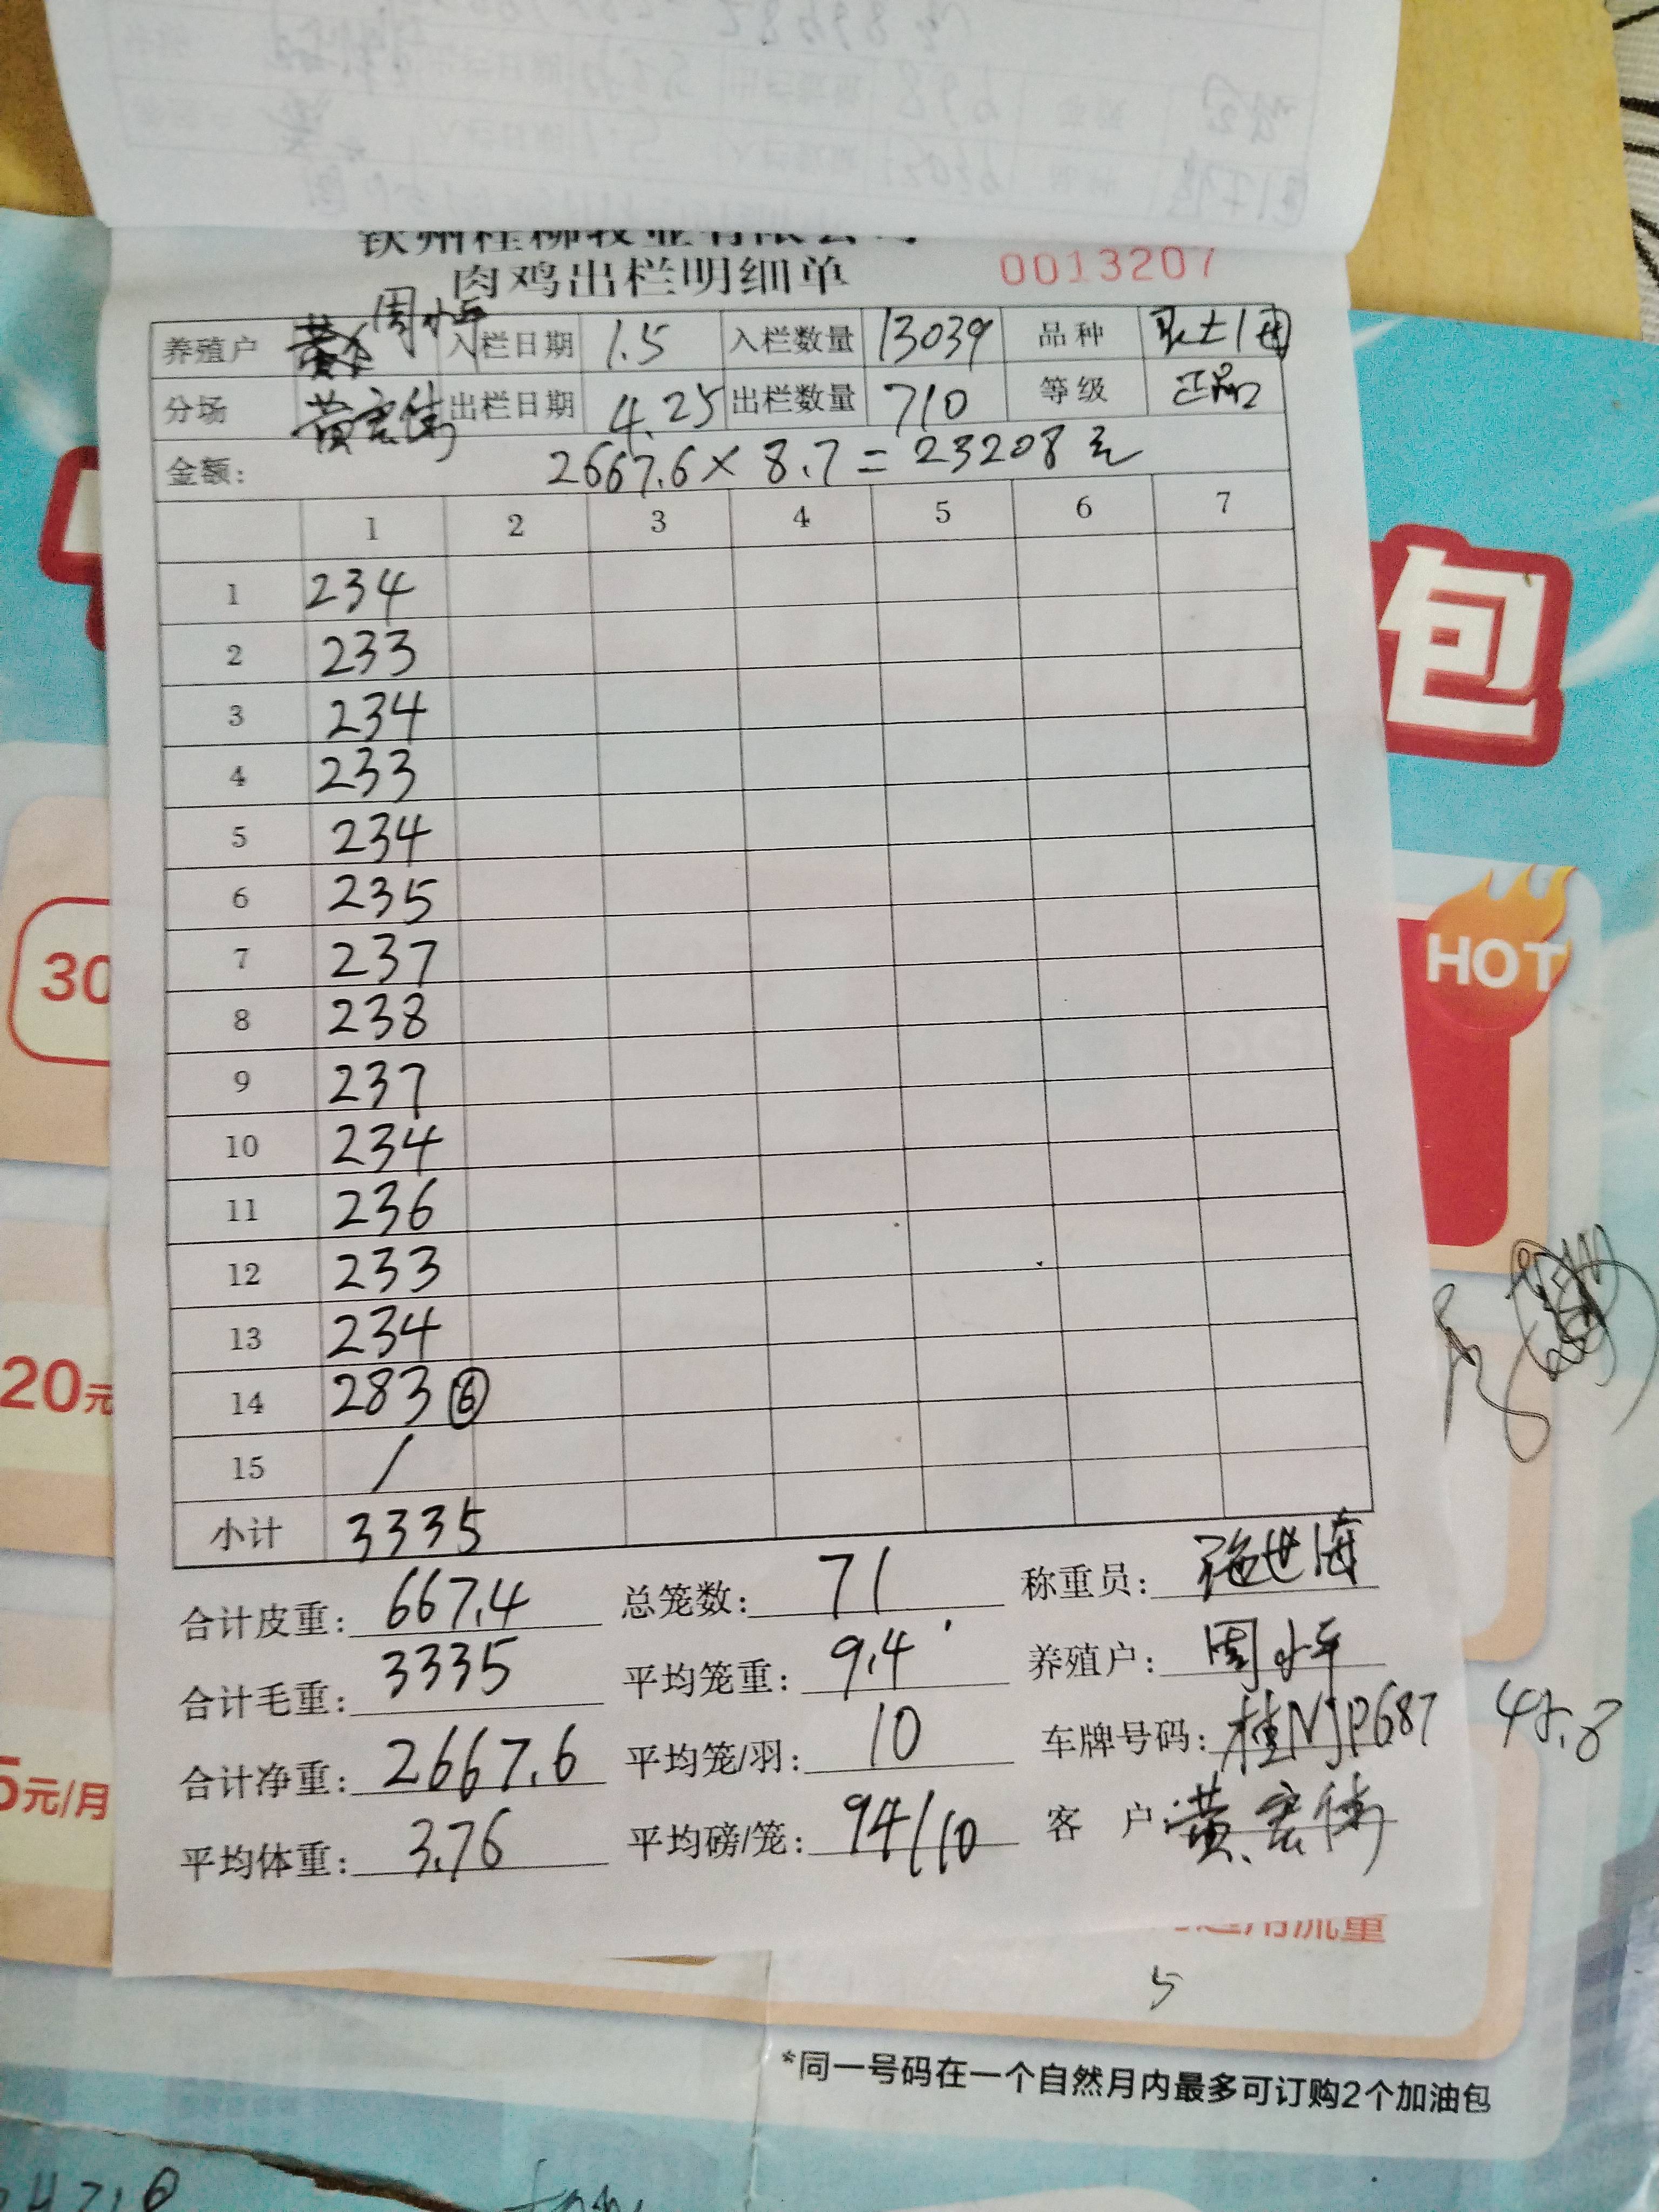 钦州桂柳牧业有限公司
肉鸡出栏明细单 0013207
养殖户 周小平 入栏日期 1.5 入栏数量 13039 品种
分场 黄宏伟 出栏日期 4.25 出栏数量 710 等级 正品
金额: 2667.6×8.7=23208元
1 2 3 4 5 6 7
1 234
2 233
3 234
4 233
5 234
6 235
7 237
8 238
9 237
10 234
11 236
12 233
13 234
14 283⑥
15 /
小计 3335
合计皮重: 667.4 总笼数: 71 称重员: 施世海
合计毛重: 3335 平均笼重: 9.4 养殖户: 周小平
合计净重: 2667.6 平均笼/羽: 10 车牌号码: 桂NJP687
平均体重: 3.76 平均磅/笼: 94/10 客户: 黄宏伟
包
HOT
30
20元
5元/月
48.8
通用流量
5
*同一号码在一个自然月内最多可订购2个加油包